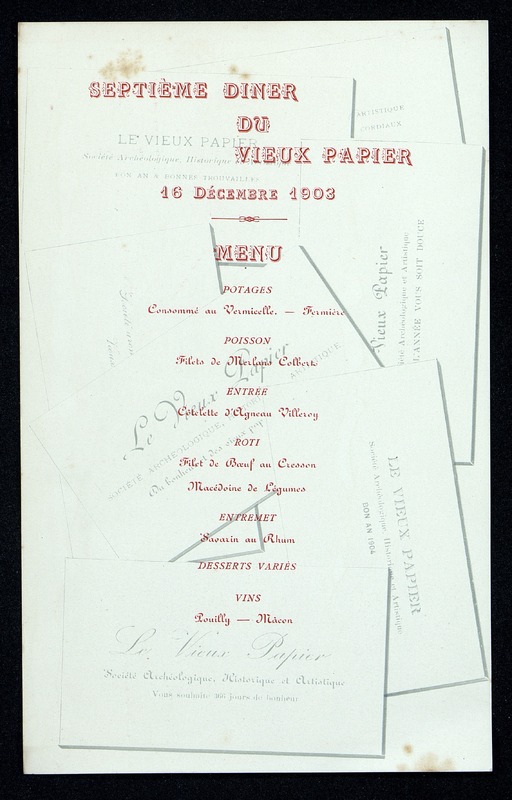 SEPTIÈME DINER
DU
VIEUX PAPIER
16 DÉCEMBRE 1903
MENU
POTAGES
Consommé au Vermicelle. — Fermière
POISSON
Filets de Merlans Colbert
ENTRÉE
Côtelette d'Agneau Villeroy
ROTI
Filet de Bœuf au Cresson
Macédoine de Légumes
ENTREMET
Savarin au Rhum
DESSERTS VARIÉS
VINS
Pouilly — Mâcon
LE VIEUX PAPIER
Société Archéologique, Historique
BON AN & BONNES TROUVAILLES
ARTISTIQUE
CORDIAUX
Vieux Papier
Archéologique et Artistique
L'ANNÉE VOUS SOIT DOUCE
Le Vieux Papier
SOCIÉTÉ ARCHÉOLOGIQUE, ARTISTIQUE
Du bonheur et des vieux pap
LE VIEUX PAPIER
Société Archéologique, Historique et Artistique
BON AN 1904
Le Vieux Papier
Société Archéologique, Historique et Artistique
Vous souhaite 366 jours de bonheur